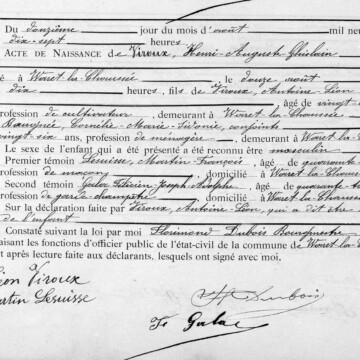 Du douzième jour du mois d'août mil neu
dix-sept heures
ACTE DE NAISSANCE de Viroux, Henri-Auguste-Ghislain
é à Waret la Chaussée le douze août
dix heures, fils de Viroux, Antoine Léon
âgé de vingt
rofession de cultivateur, demeurant à Waret la Chaussée
Marie conjoints
vingt-six ans, profession de ménagère, demeurant à Waret-la-C
Le sexe de l'enfant qui a été présenté a été reconnu être masculin
Premier témoin Lesuisse, Martin François, âgé de quarante
rofession de maçon, domicilié à Waret la Chaus
Second témoin Joseph Adolphe, âgé de quarante
rofession de garde-champêtre domicilié à Waret-la-Chauss
Sur la déclaration faite par Viroux, Antoine-Léon, qui a dit être
de l'enfant
Constaté suivant la loi par moi Florimond Dubois Bourgmestre
aisant les fonctions d'officier public de l'état-civil de la commune de Waret-la-Ch
t après lecture faite aux déclarants, lesquels ont signé avec moi.
éon Viroux
artin Lesuisse
Dubois